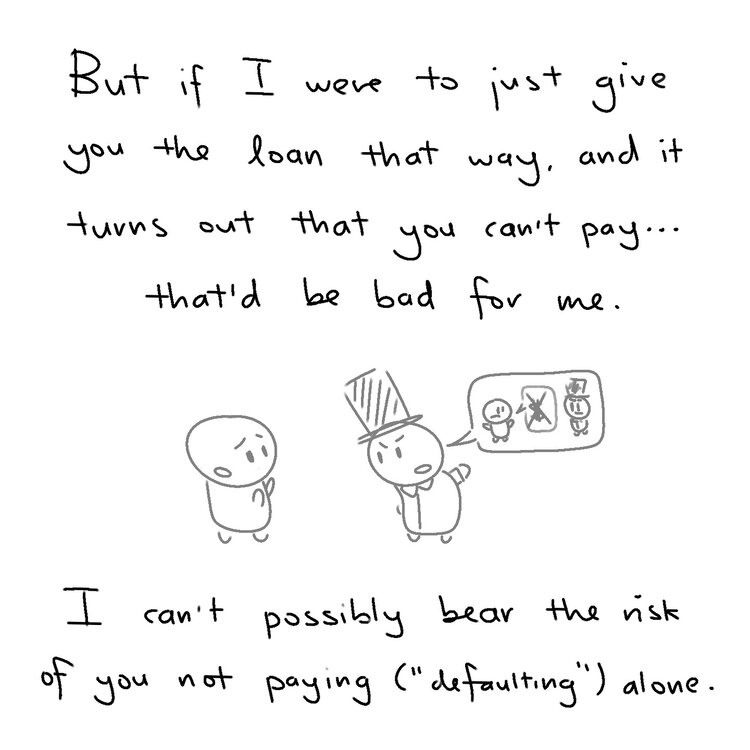 But if I were to just give
you the loan that way, and it
turns out that you can't pay...
that'd be bad for me.
I can't possibly bear the risk
of you not paying ("defaulting") alone.